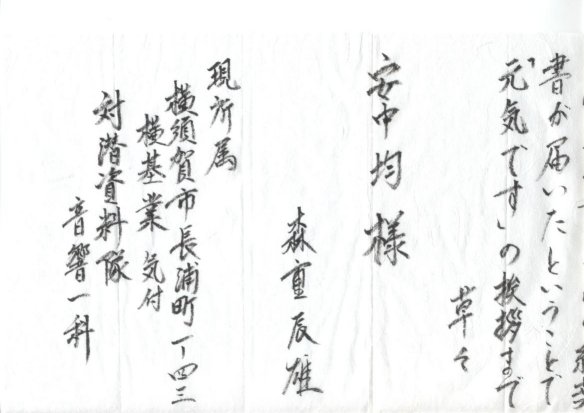 書が届いたということで
「元気です」の挨拶まで
草々
安中均様
森重辰雄
現所属
横須賀市長浦町一ー四三
横基業気付
対潜資料隊
音響一科